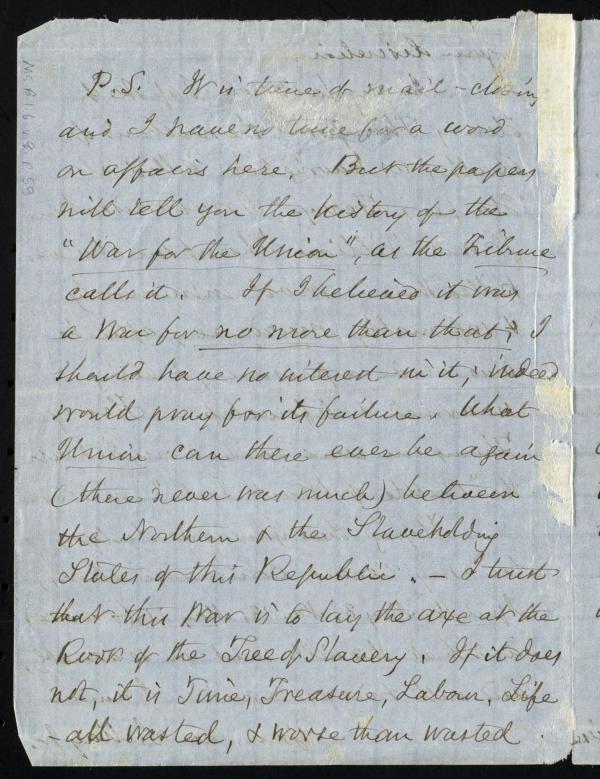 P.S. It is time of mail-closing
and I have no time for a word
on affairs here. But the papers
will tell you the history of the
"War for the Union", as the Tribune
calls it. If I believed it was
a War for no more than that, I
should have no interest in it, indeed
would pray for its failure. What
Union can there ever be again
(there never was much) between
the Northern & the Slaveholding
States of this Republic. - I trust
that this War is to lay the axe at the
Root of the Tree of Slavery. If it does
not, it is Time, Treasure, Labour, Life
- all wasted, & worse than wasted.